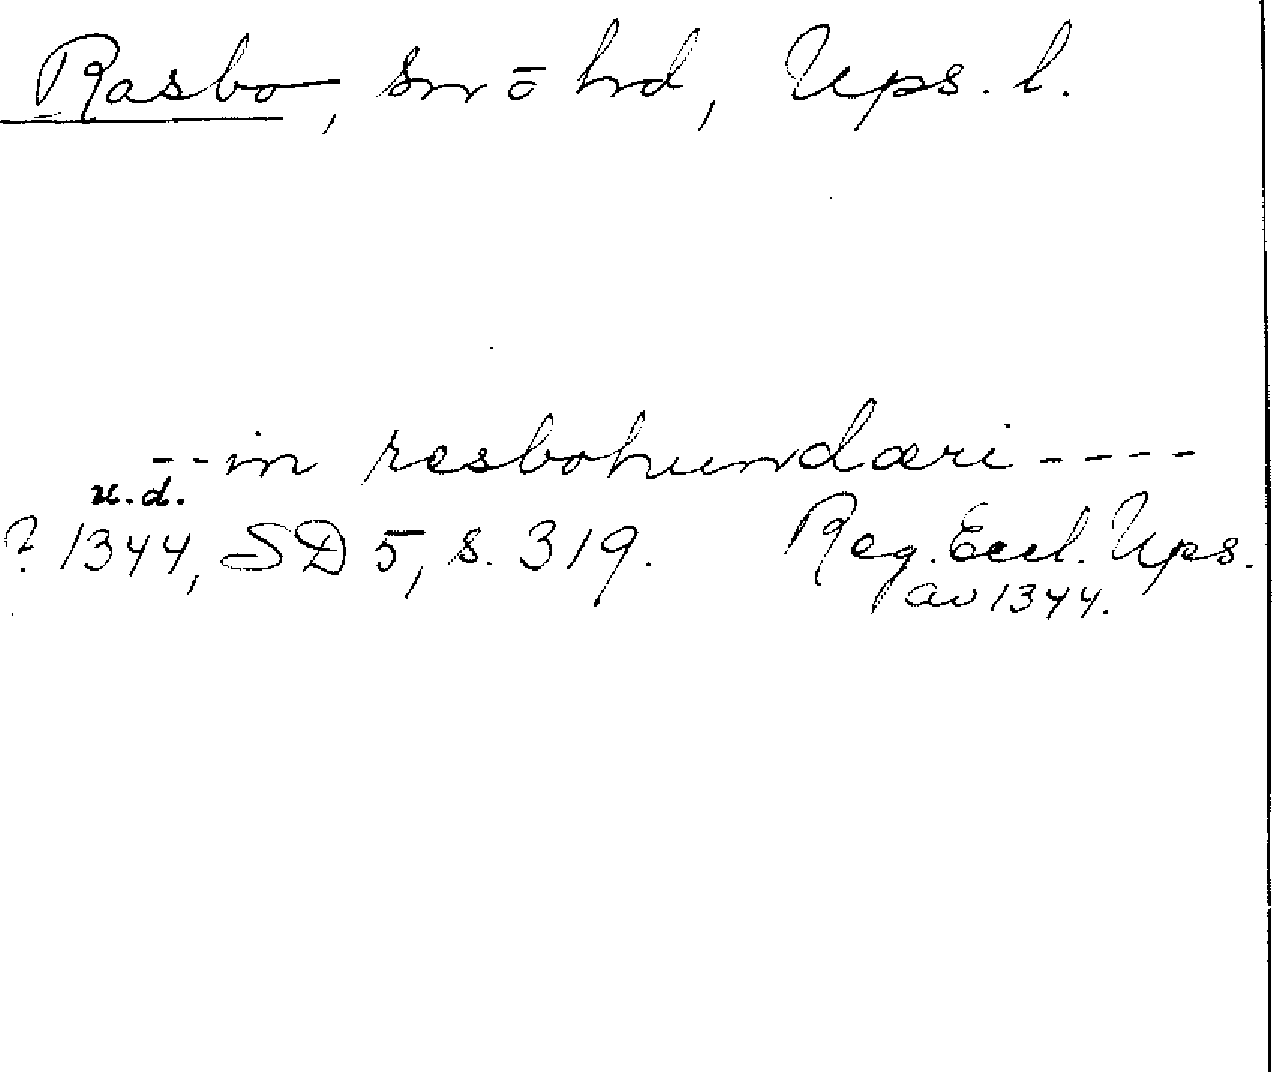 Rasbo, sn o hd, Ups. l.
--in resbohundæri----
u.d.
? 1344, SD 5, s. 319. Reg. Eccl. Ups.
av 1344.